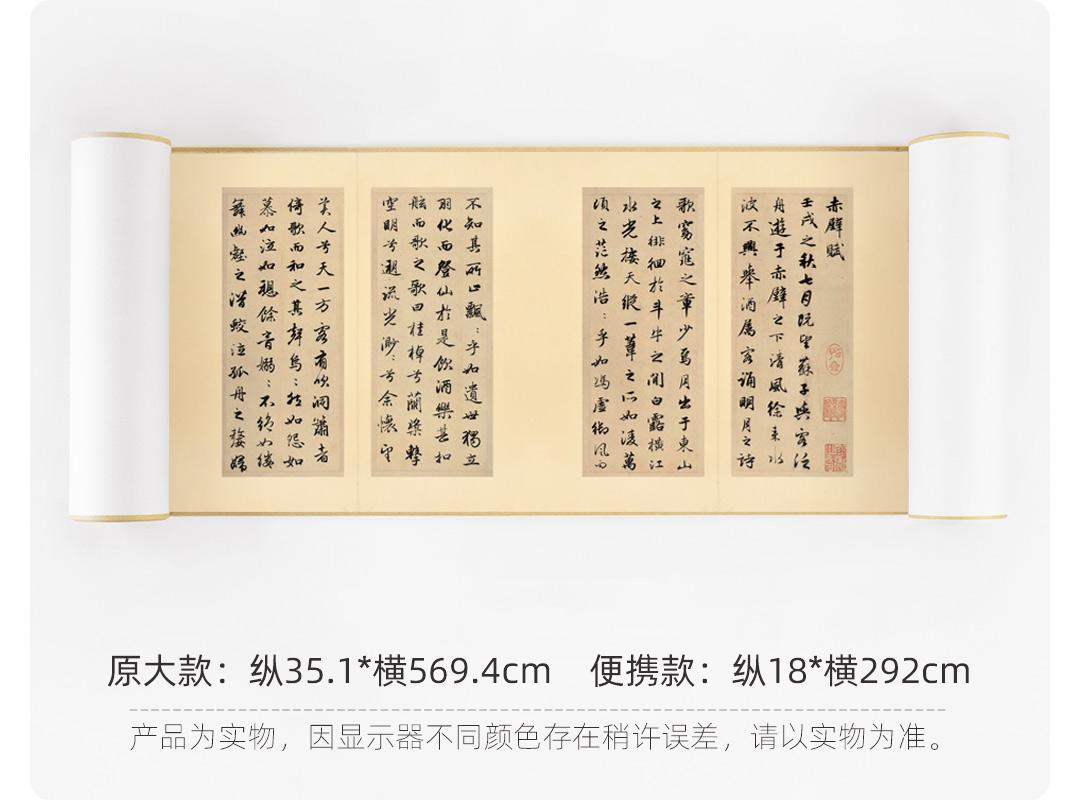 赤壁賦
壬戌之秋七月既望蘇子與客泛
舟遊于赤壁之下清風徐來水
波不興舉酒属客誦明月之詩
歌窈窕之章少焉月出于東山
之上徘徊於斗牛之間白露横江
水光接天縱一葦之所如凌萬
頃之茫然浩:乎如馮虚御風而
不知其所止飄:乎如遺世獨立
羽化而登仙於是飲酒樂甚扣
舷而歌之歌曰桂棹兮蘭槳擊
空明兮遡流光渺:兮余懷望
美人兮天一方客有吹洞簫者
倚歌而和之其聲烏:然如怨如
慕如泣如愬餘音嫋:不絶如縷
舞幽壑之潜蛟泣孤舟之嫠婦
原大款：纵35.1*横569.4cm 便携款：纵18*横292cm
产品为实物，因显示器不同颜色存在稍许误差，请以实物为准。